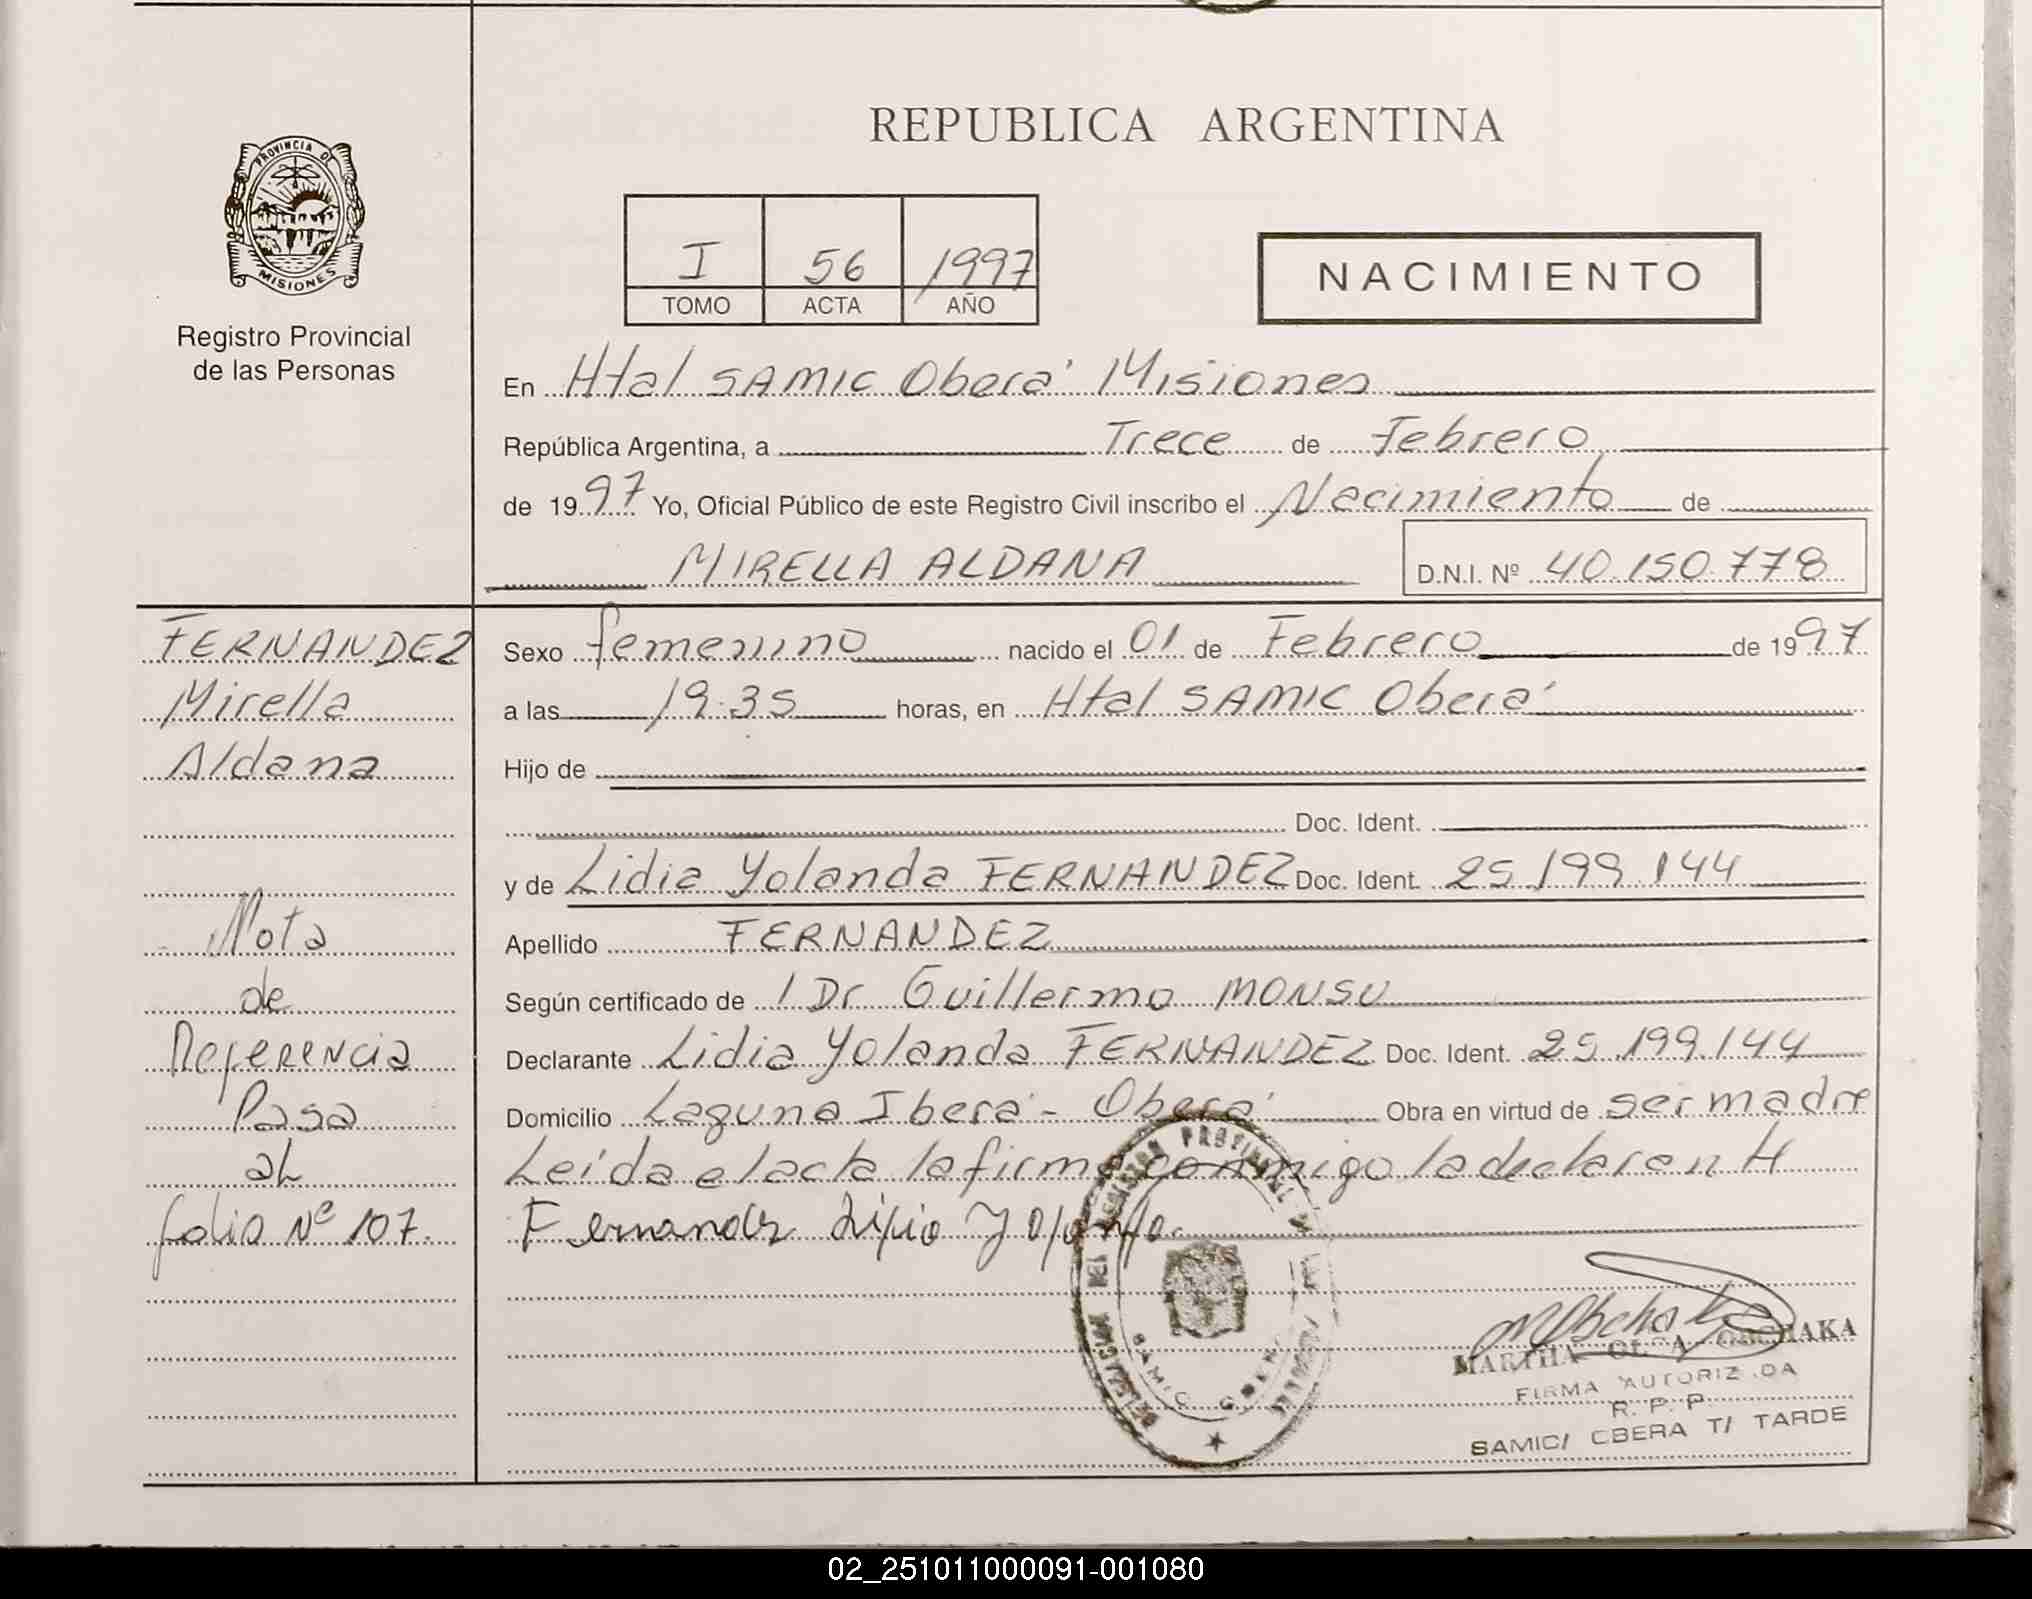 REPUBLICA ARGENTINA
PROVINCIA DE
MISIONES
Registro Provincial
de las Personas
I 56 1997
TOMO ACTA AÑO
NACIMIENTO
En Htal SAMIC Oberá Misiones
República Argentina, a Trece de Febrero
de 1997 Yo, Oficial Público de este Registro Civil inscribo el Nacimiento de
MIRELLA ALDANA D.N.I. Nº 40.150.778
FERNANDEZ
Mirella
Aldana
Nota
de
Referencia
Pasa
al
folio Nº 107.
Sexo femenino nacido el 01 de Febrero de 1997
a las 19.35 horas, en Htal SAMIC Oberá
Hijo de
Doc. Ident.
y de Lidia Yolanda FERNANDEZ Doc. Ident. 25.199.144
Apellido FERNANDEZ
Según certificado de l Dr Guillermo MONSU
Declarante Lidia Yolanda FERNANDEZ Doc. Ident. 25.199.144
Domicilio Laguna Iberá - Oberá Obra en virtud de ser madre
Leída el acta la firma conmigo la declarante
Fernandez Lidia Yolanda
DELEGACION DEL REGISTRO PROVINCIAL DE LAS PERSONAS
SAMIC OBERA
MARTHA OLGA OBCHAKA
FIRMA AUTORIZADA
R. P. P.
SAMIC/ OBERA T/ TARDE
02_251011000091-001080